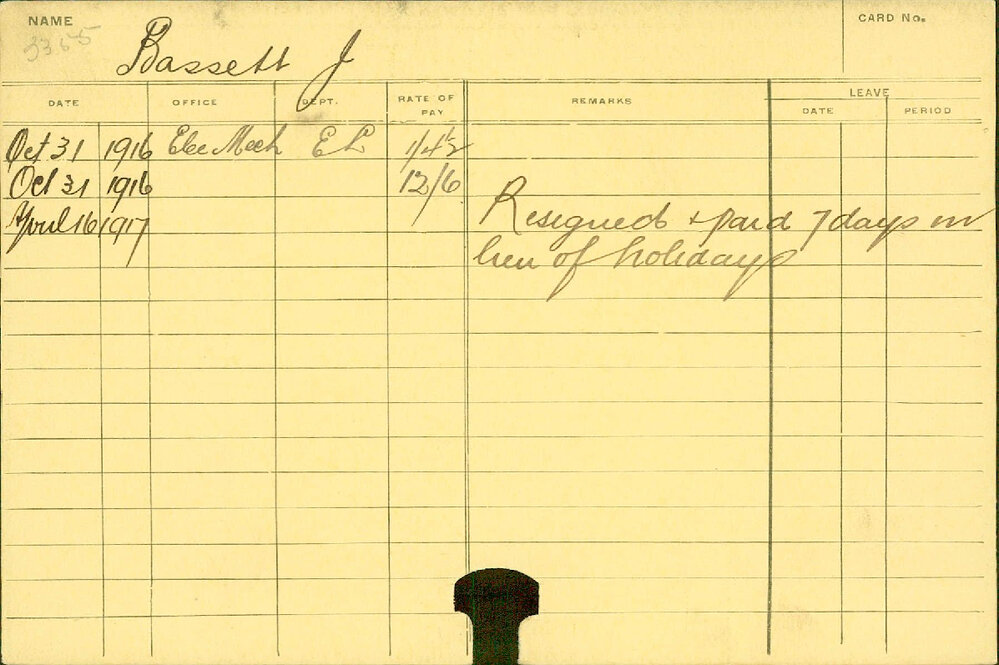 NAME
3365
Bassett J
CARD No.
DATE OFFICE DEPT. RATE OF PAY REMARKS LEAVE
DATE PERIOD
Oct 31 1916 Elec Mech EL 1/4½
Oct 31 1916 12/6
April 16 1917 Resigned + paid 7 days in
lieu of holidays